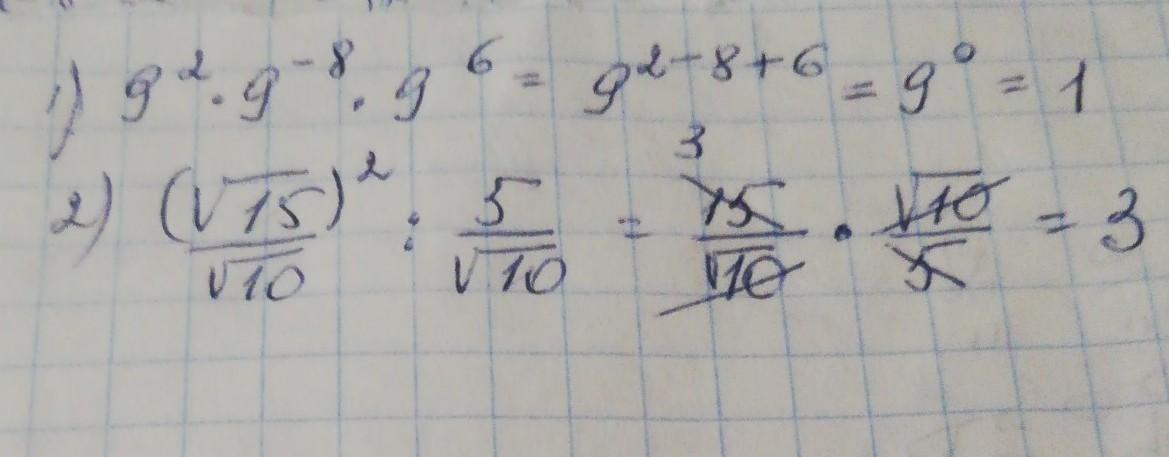 1) 9² · 9⁻⁸ · 9⁶ = 9²⁻⁸⁺⁶ = 9⁰ = 1
2) (√15)²/√10 : 5/√10 = 3 15/√10 · √10/5 = 3